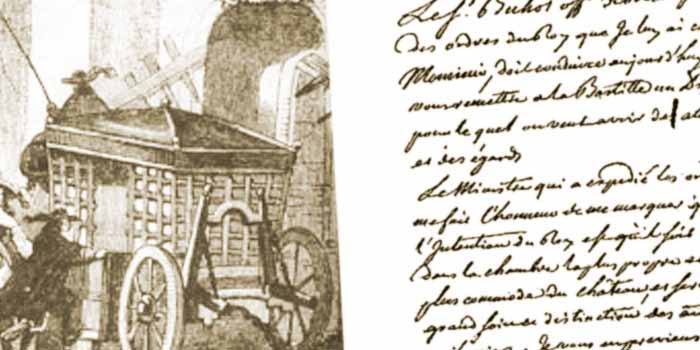 Le Sr. Buhot off
des ordres du Roy que Je luy ai
Monsieur, doit conduire aujourd'huy
vous remettre a la Bastille un
pour le quel on veut avoir des
et des égards
Le Ministre qui a expedié les
me fait l'honneur de me marquer
l'Intention du Roy est qu'il soit
dans la chambre la plus propre et
plus commode du château, et
grand soin et distinction, des
Je vous en previens